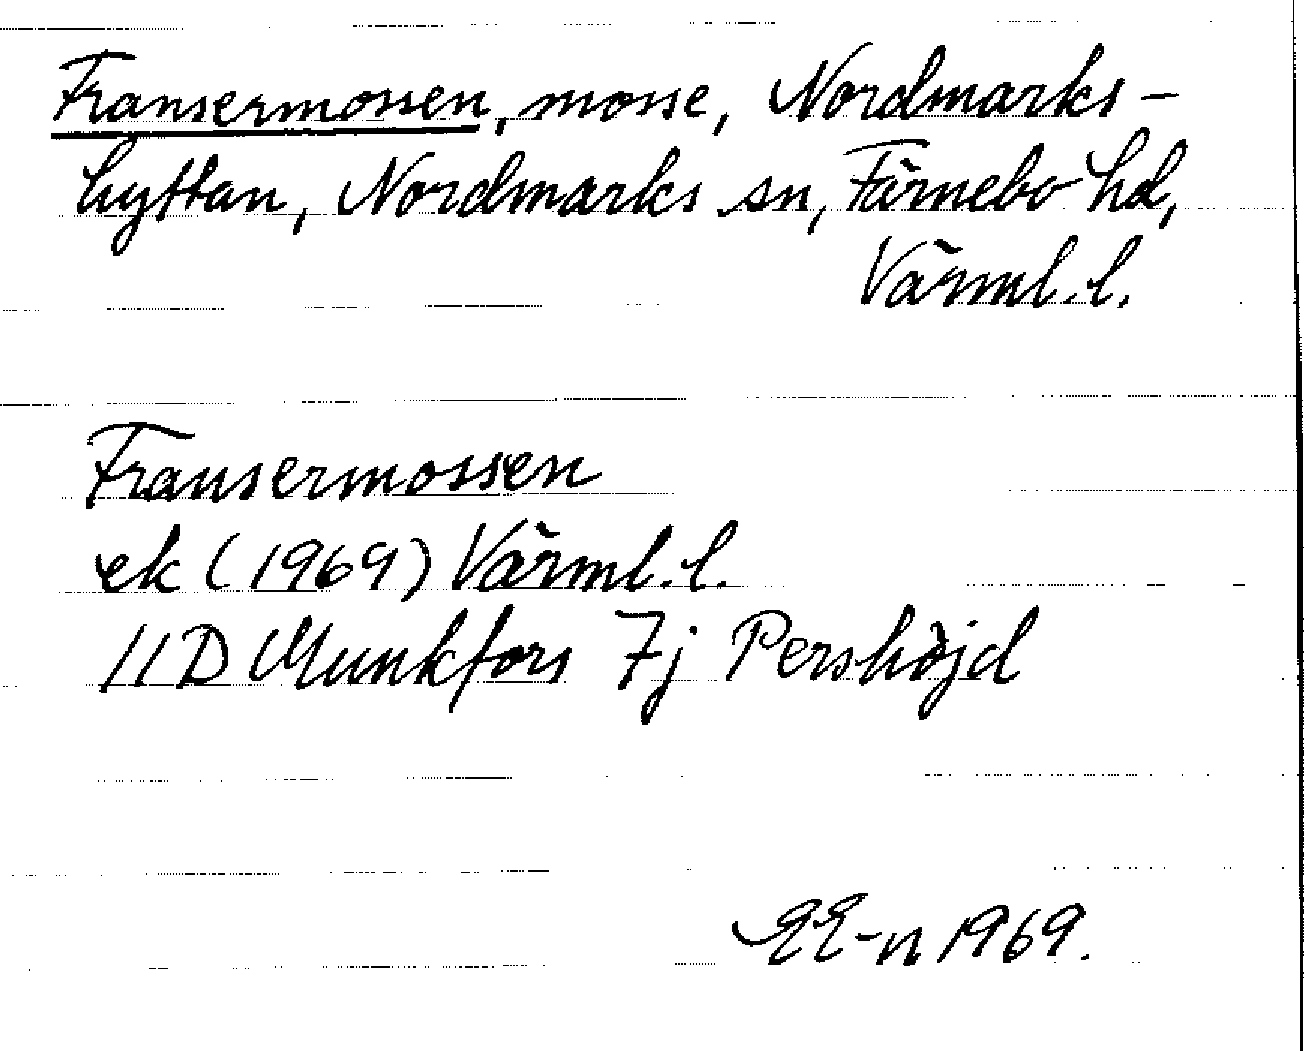 Fransermossen, mosse, Nordmarks-
hyttan, Nordmarks sn, Färnebo hd,
Värml. l.
Fransermossen
ek (1969) Värml. l.
11D Munkfors 7j Pershöjd
EE-n 1969.